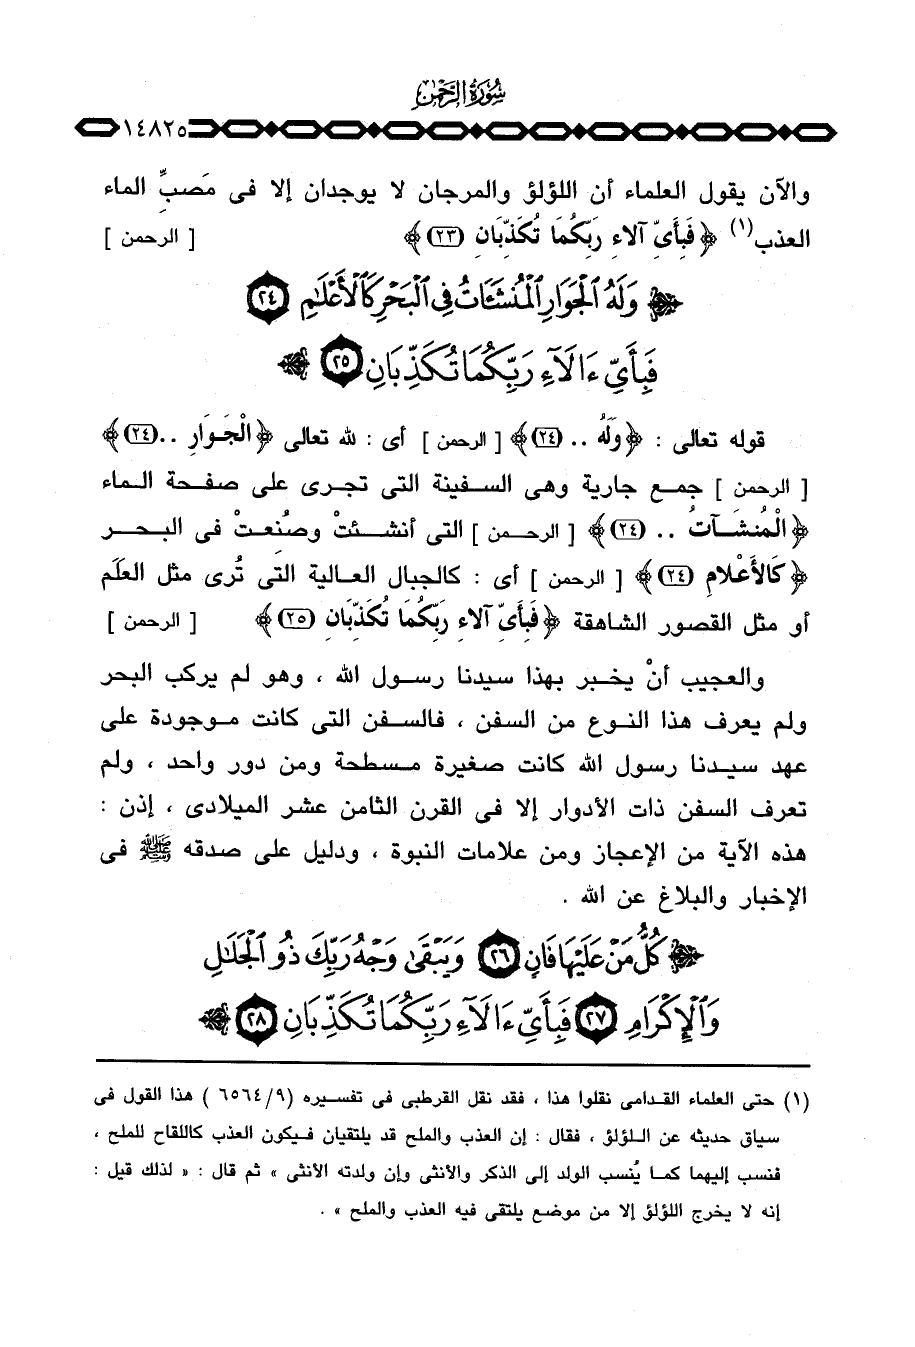 سُورَةُ الرَّحْمَٰن
١٤٨٢٥
والآن يقول العلماء أن اللؤلؤ والمرجان لا يوجدان إلا فى مَصبِّ الماء
العذب(١) ﴿فَبِأَىِّ آلاءِ رَبِّكُمَا تُكَذِّبَانِ (٢٣)﴾ [ الرحمن ]
﴿ وَلَهُ ٱلْجَوَارِ ٱلْمُنشَـَٔاتُ فِى ٱلْبَحْرِ كَٱلْأَعْلَـٰمِ ٢٤
فَبِأَىِّ ءَالَآءِ رَبِّكُمَا تُكَذِّبَانِ ٢٥ ﴾
قوله تعالى : ﴿وَلَهُ .. (٢٤)﴾ [ الرحمن ] أى : لله تعالى ﴿الْجَوَارِ ..(٢٤)﴾
[ الرحمن ] جمع جارية وهى السفينة التى تجرى على صفحة الماء
﴿الْمُنشَآتُ .. (٢٤)﴾ [ الرحمن ] التى أنشئتْ وصُنعتْ فى البحر
﴿كَالأَعْلامِ (٢٤)﴾ [ الرحمن ] أى : كالجبال العالية التى تُرى مثل العلَم
أو مثل القصور الشاهقة ﴿فَبِأَىِّ آلاءِ رَبِّكُمَا تُكَذِّبَانِ (٢٥)﴾ [ الرحمن ]
والعجيب أنْ يخبر بهذا سيدنا رسول الله ، وهو لم يركب البحر
ولم يعرف هذا النوع من السفن ، فالسفن التى كانت موجودة على
عهد سيدنا رسول الله كانت صغيرة مسطحة ومن دور واحد ، ولم
تعرف السفن ذات الأدوار إلا فى القرن الثامن عشر الميلادى ، إذن :
هذه الآية من الإعجاز ومن علامات النبوة ، ودليل على صدقه ﷺ فى
الإخبار والبلاغ عن الله .
﴿ كُلُّ مَنْ عَلَيْهَا فَانٍ ٢٦ وَيَبْقَىٰ وَجْهُ رَبِّكَ ذُو ٱلْجَلَـٰلِ
وَٱلْإِكْرَامِ ٢٧ فَبِأَىِّ ءَالَآءِ رَبِّكُمَا تُكَذِّبَانِ ٢٨ ﴾
(١) حتى العلماء القدامى نقلوا هذا ، فقد نقل القرطبى فى تفسيره (٦٥٦٤/٩ ) هذا القول فى
سياق حديثه عن اللؤلؤ ، فقال : إن العذب والملح قد يلتقيان فيكون العذب كاللقاح للملح ،
فنسب إليهما كما يُنسب الولد إلى الذكر والأنثى وإن ولدته الأنثى » ثم قال : « لذلك قيل :
إنه لا يخرج اللؤلؤ إلا من موضع يلتقى فيه العذب والملح » .